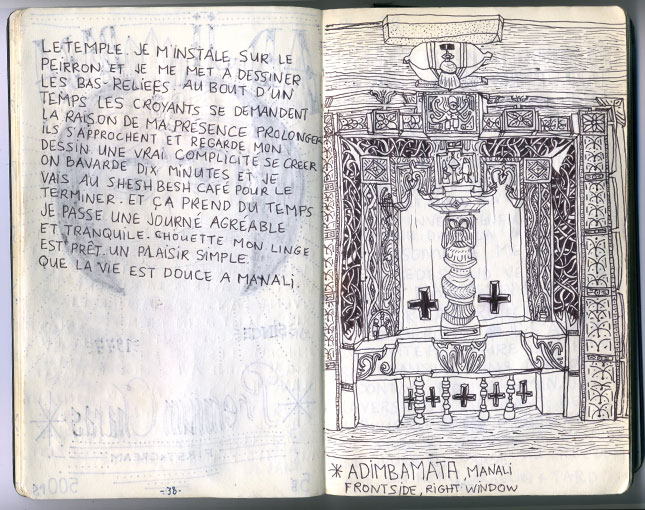 LE TEMPLE. JE M'INSTALE SUR LE
PEIRRON ET JE ME MET A DESSINER
LES BAS-RELIEFS. AU BOUT D'UN
TEMPS LES CROYANTS SE DEMANDENT
LA RAISON DE MA PRÉSENCE PROLONGER
ILS S'APPROCHENT ET REGARDE MON
DESSIN UNE VRAI COMPLICITÉ SE CREER
ON BAVARDE DIX MINUTES ET JE
VAIS AU SHESH BESH CAFÉ POUR LE
TERMINER. ET ÇA PREND DU TEMPS
JE PASSE UNE JOURNÉ AGRÉABLE
ET TRANQUILE. CHOUETTE MON LINGE
EST PRÊT. UN PLAISIR SIMPLE.
QUE LA VIE EST DOUCE A MANALI.
-38-
* ADIMBAMATA, MANALI
FRONTSIDE, RIGHT WINDOW